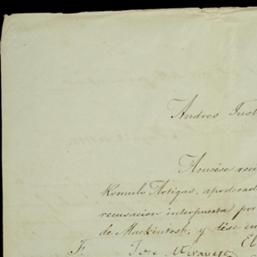 Andres Just
Acusese rec
Romulo Artigas, apoderad
recusacion interpuesta por
de Mackintosh, y dése cu
F. José Alvarez El